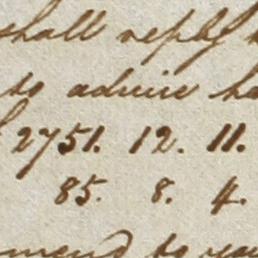 shall reply
to advice ha
2751. 12. 11.
85. 8. 4.
mend to you